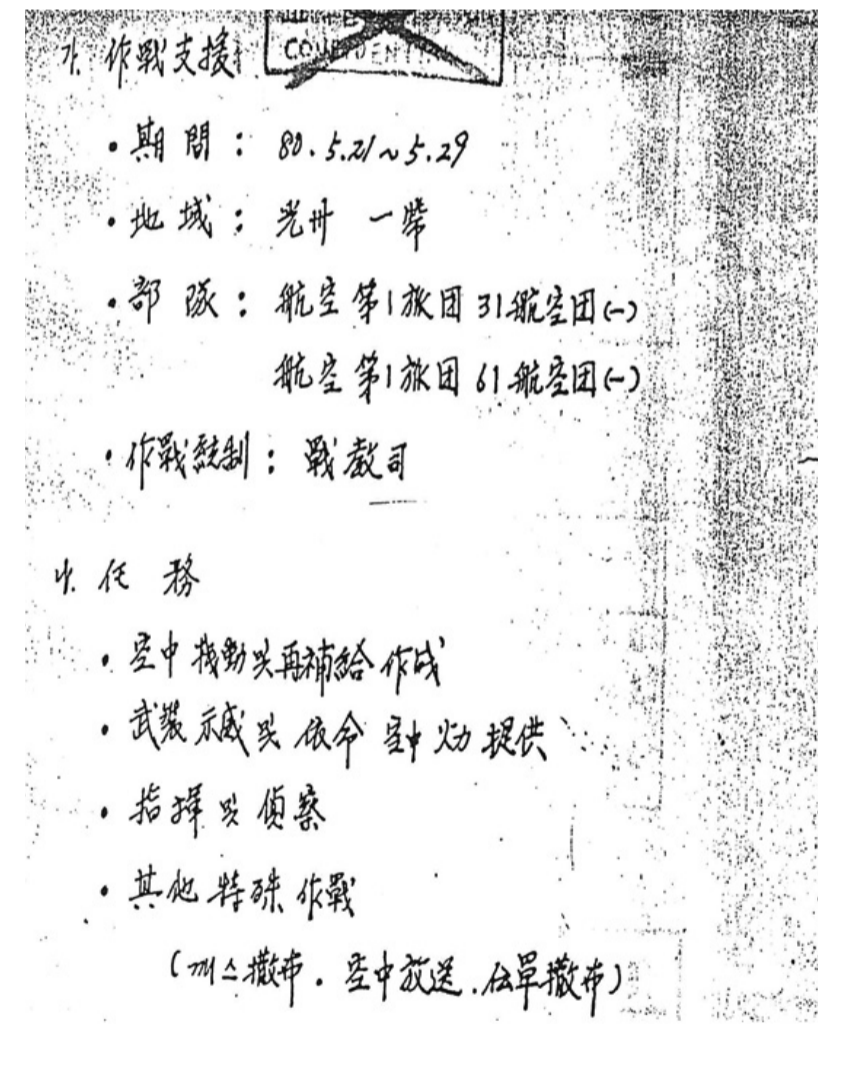 CONFIDENTIAL
가. 作戰支援
• 期間 : 80. 5.21 ~ 5.29
• 地域 : 光州 一帶
• 部隊 : 航空 第1旅団 31航空団(-)
航空 第1旅団 61航空団(-)
• 作戰統制 : 戰敎司
나. 任務
• 空中 機動 및 再補給 作戰
• 武裝 示威 및 依命 空中 火力 提供
• 指揮 및 偵察
• 其他 特殊 作戰
(까스撒布. 空中放送. 伝單撒布)